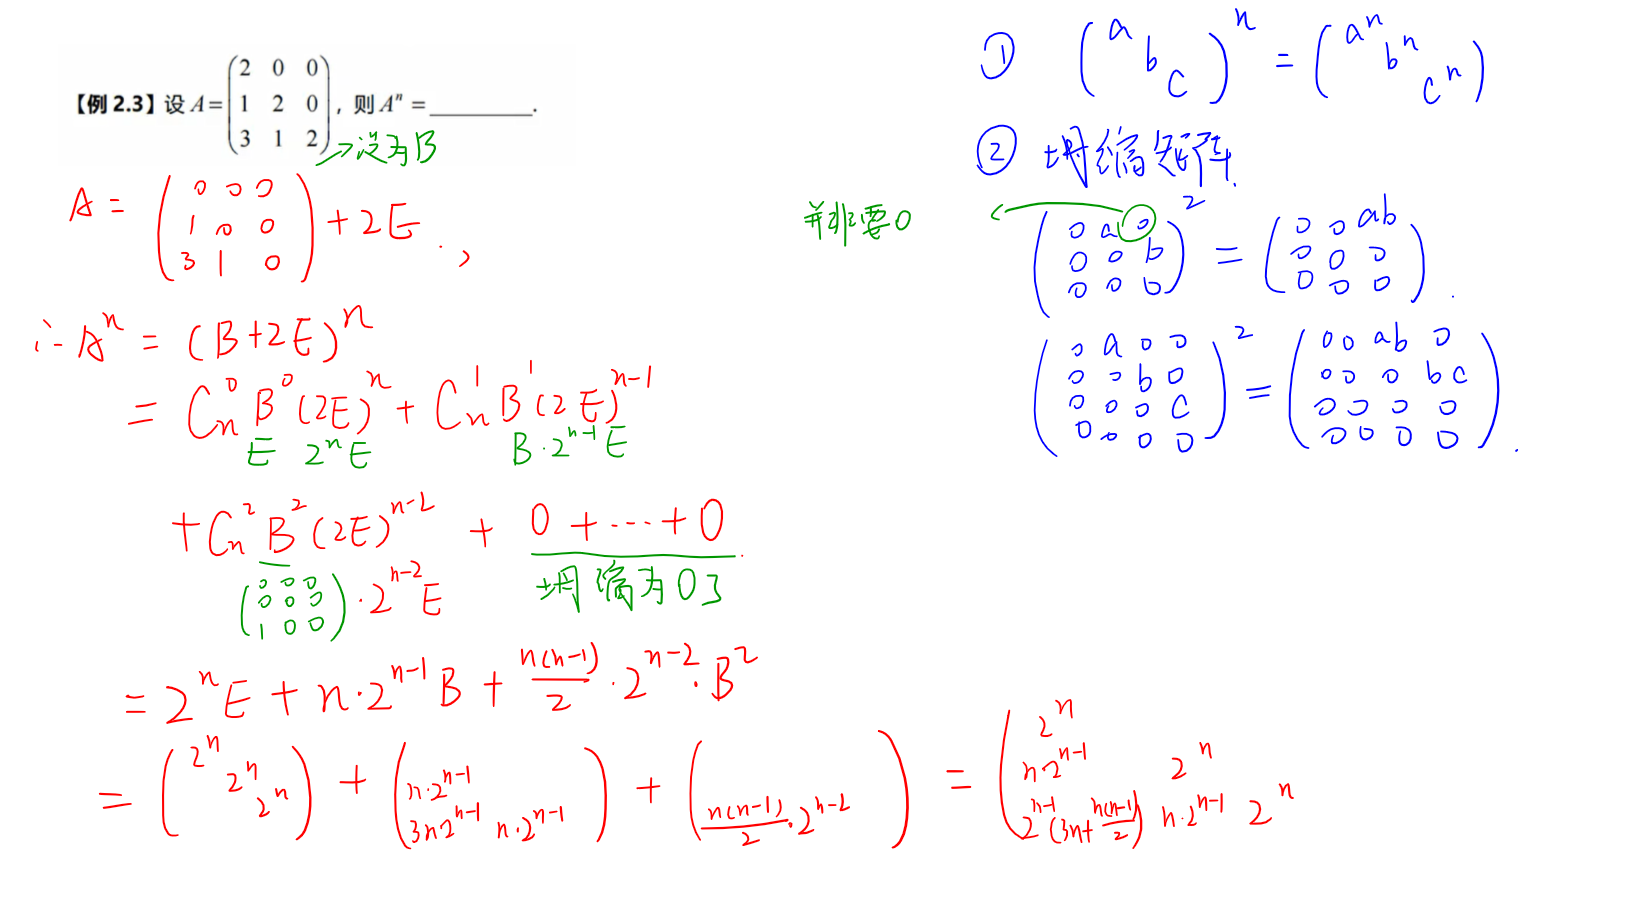 【例 2.3】设 A = \begin{pmatrix} 2 & 0 & 0 \\ 1 & 2 & 0 \\ 3 & 1 & 2 \end{pmatrix}, 则 A^n = ________.
→设为B
A = \begin{pmatrix} 0 & 0 & 0 \\ 1 & 0 & 0 \\ 3 & 1 & 0 \end{pmatrix} + 2E,
∴ A^n = (B+2E)^n
= C_n^0 B^0 (2E)^n + C_n^1 B^1 (2E)^{n-1}
E 2^n E B·2^{n-1}E
+ C_n^2 B^2 (2E)^{n-2} + 0+⋯+0
\begin{pmatrix} 0 & 0 & 0 \\ 0 & 0 & 0 \\ 1 & 0 & 0 \end{pmatrix}·2^{n-2}E 坍缩为0了
= 2^n E + n·2^{n-1} B + \frac{n(n-1)}{2}·2^{n-2}·B^2
= \begin{pmatrix} 2^n & & \\ & 2^n & \\ & & 2^n \end{pmatrix} + \begin{pmatrix} & & \\ n·2^{n-1} & & \\ 3n·2^{n-1} & n·2^{n-1} & \end{pmatrix} + \begin{pmatrix} & & \\ & & \\ \frac{n(n-1)}{2}·2^{n-2} & & \end{pmatrix} = \begin{pmatrix} 2^n & & \\ n·2^{n-1} & 2^n & \\ 2^{n-1}(3n+\frac{n(n-1)}{2}) & n·2^{n-1} & 2^n \end{pmatrix}
① \begin{pmatrix} a & & \\ & b & \\ & & c \end{pmatrix}^n = \begin{pmatrix} a^n & & \\ & b^n & \\ & & c^n \end{pmatrix}
② 坍缩矩阵.
并非要0 ← \begin{pmatrix} 0 & a & 0 \\ 0 & 0 & b \\ 0 & 0 & 0 \end{pmatrix}^2 = \begin{pmatrix} 0 & 0 & ab \\ 0 & 0 & 0 \\ 0 & 0 & 0 \end{pmatrix}.
\begin{pmatrix} 0 & a & 0 & 0 \\ 0 & 0 & b & 0 \\ 0 & 0 & 0 & c \\ 0 & 0 & 0 & 0 \end{pmatrix}^2 = \begin{pmatrix} 0 & 0 & ab & 0 \\ 0 & 0 & 0 & bc \\ 0 & 0 & 0 & 0 \\ 0 & 0 & 0 & 0 \end{pmatrix}.